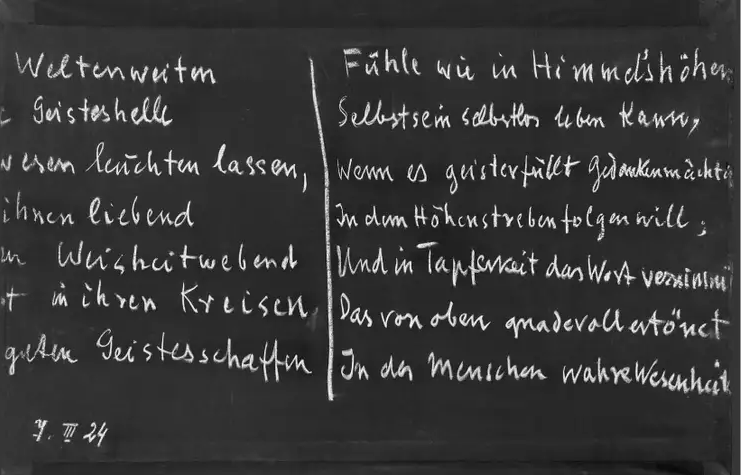 Weltenweiten
Geisteshelle
wesen leuchten lassen,
ihnen liebend
Weisheitwebend
in ihren Kreisen
guten Geistesschaffen
7. III 24
Fühle wie in Himmelshöhen
Selbstsein selbstlos leben kann,
Wenn es geisterfüllt Gedankenmächten
In dem Höhenstreben folgen will;
Und in Tapferkeit das Wort vernimmt
Das von oben gnadevoll ertönet
In der Menschen wahre Wesenheit